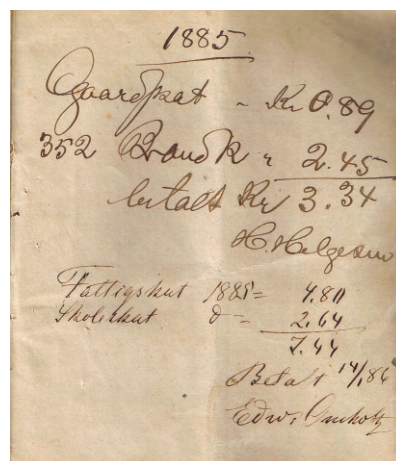 1885.
Gaardskat " Kr 0.89
352 Brandk " 2.45
betalt Kr 3.34
H. Helgesen
Fattigskat 1885 = 4.80
Skoleskat d = 2.64
7.44
Betalt 14/1 86
Edw. Omholt